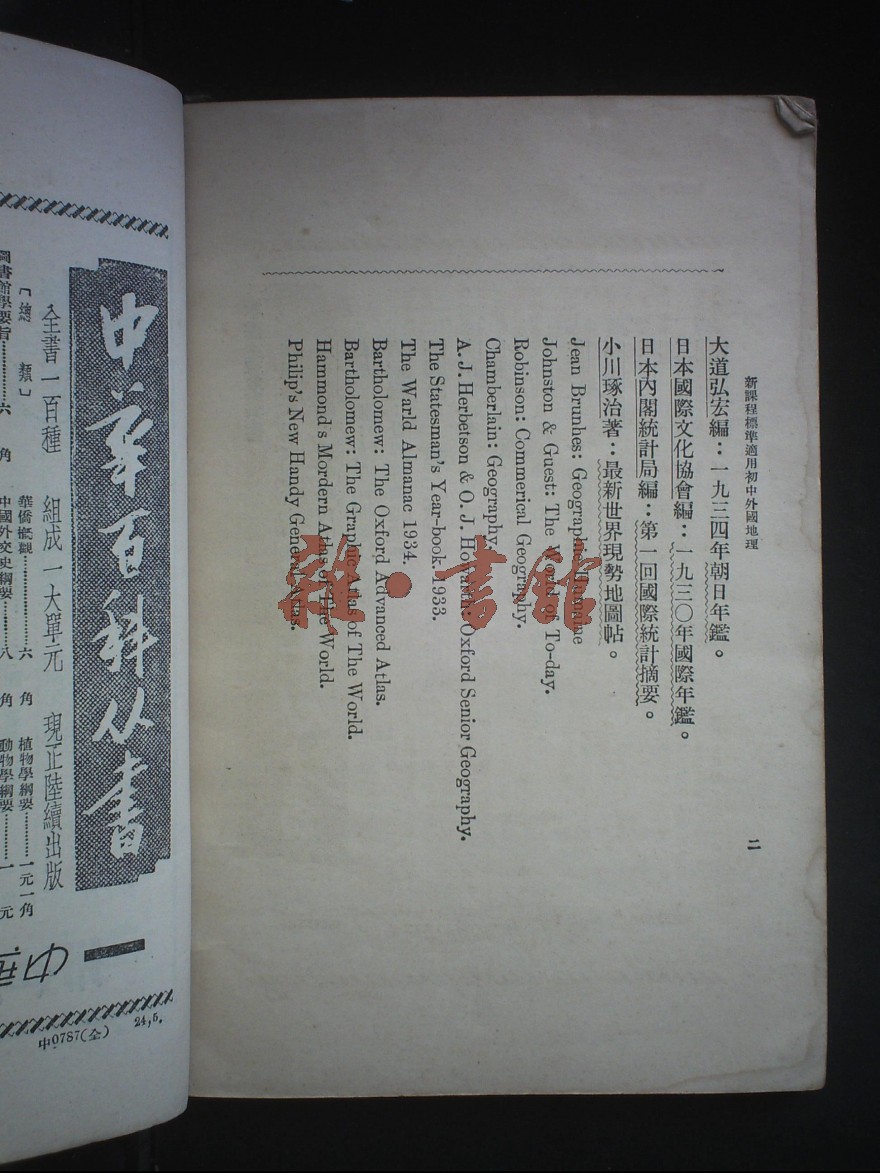 新課程標準適用初中外國地理
二
大道弘宏編：一九三四年朝日年鑑。
日本國際文化協會編：一九三〇年國際年鑑。
日本內閣統計局編：第一回國際統計摘要。
小川琢治著：最新世界現勢地圖帖。
Jean Brunhes: Geographie Humaine
Johnston & Guest: The World of To-day.
Robinson: Commerical Geography.
Chamberlain: Geography.
A. J. Herbetson & O. J. Howarth: Oxford Senior Geography.
The Statesman's Year-book. 1933.
The Warld Almanac 1934.
Bartholomew: The Oxford Advanced Atlas.
Bartholomew: The Graphic Atlas of The World.
Hammond's Mordern Atlas of The World.
Philip's New Handy General Atlas.
雜·書館
中華百科丛書
全書一百種 組成一大單元 現正陸續出版
〔總類〕
圖書館學要旨…………六角
華僑概觀…………六角
植物學綱要…………一元一角
中國外交史綱要……八角
動物學綱要……一元
中0787(全) 24,5.